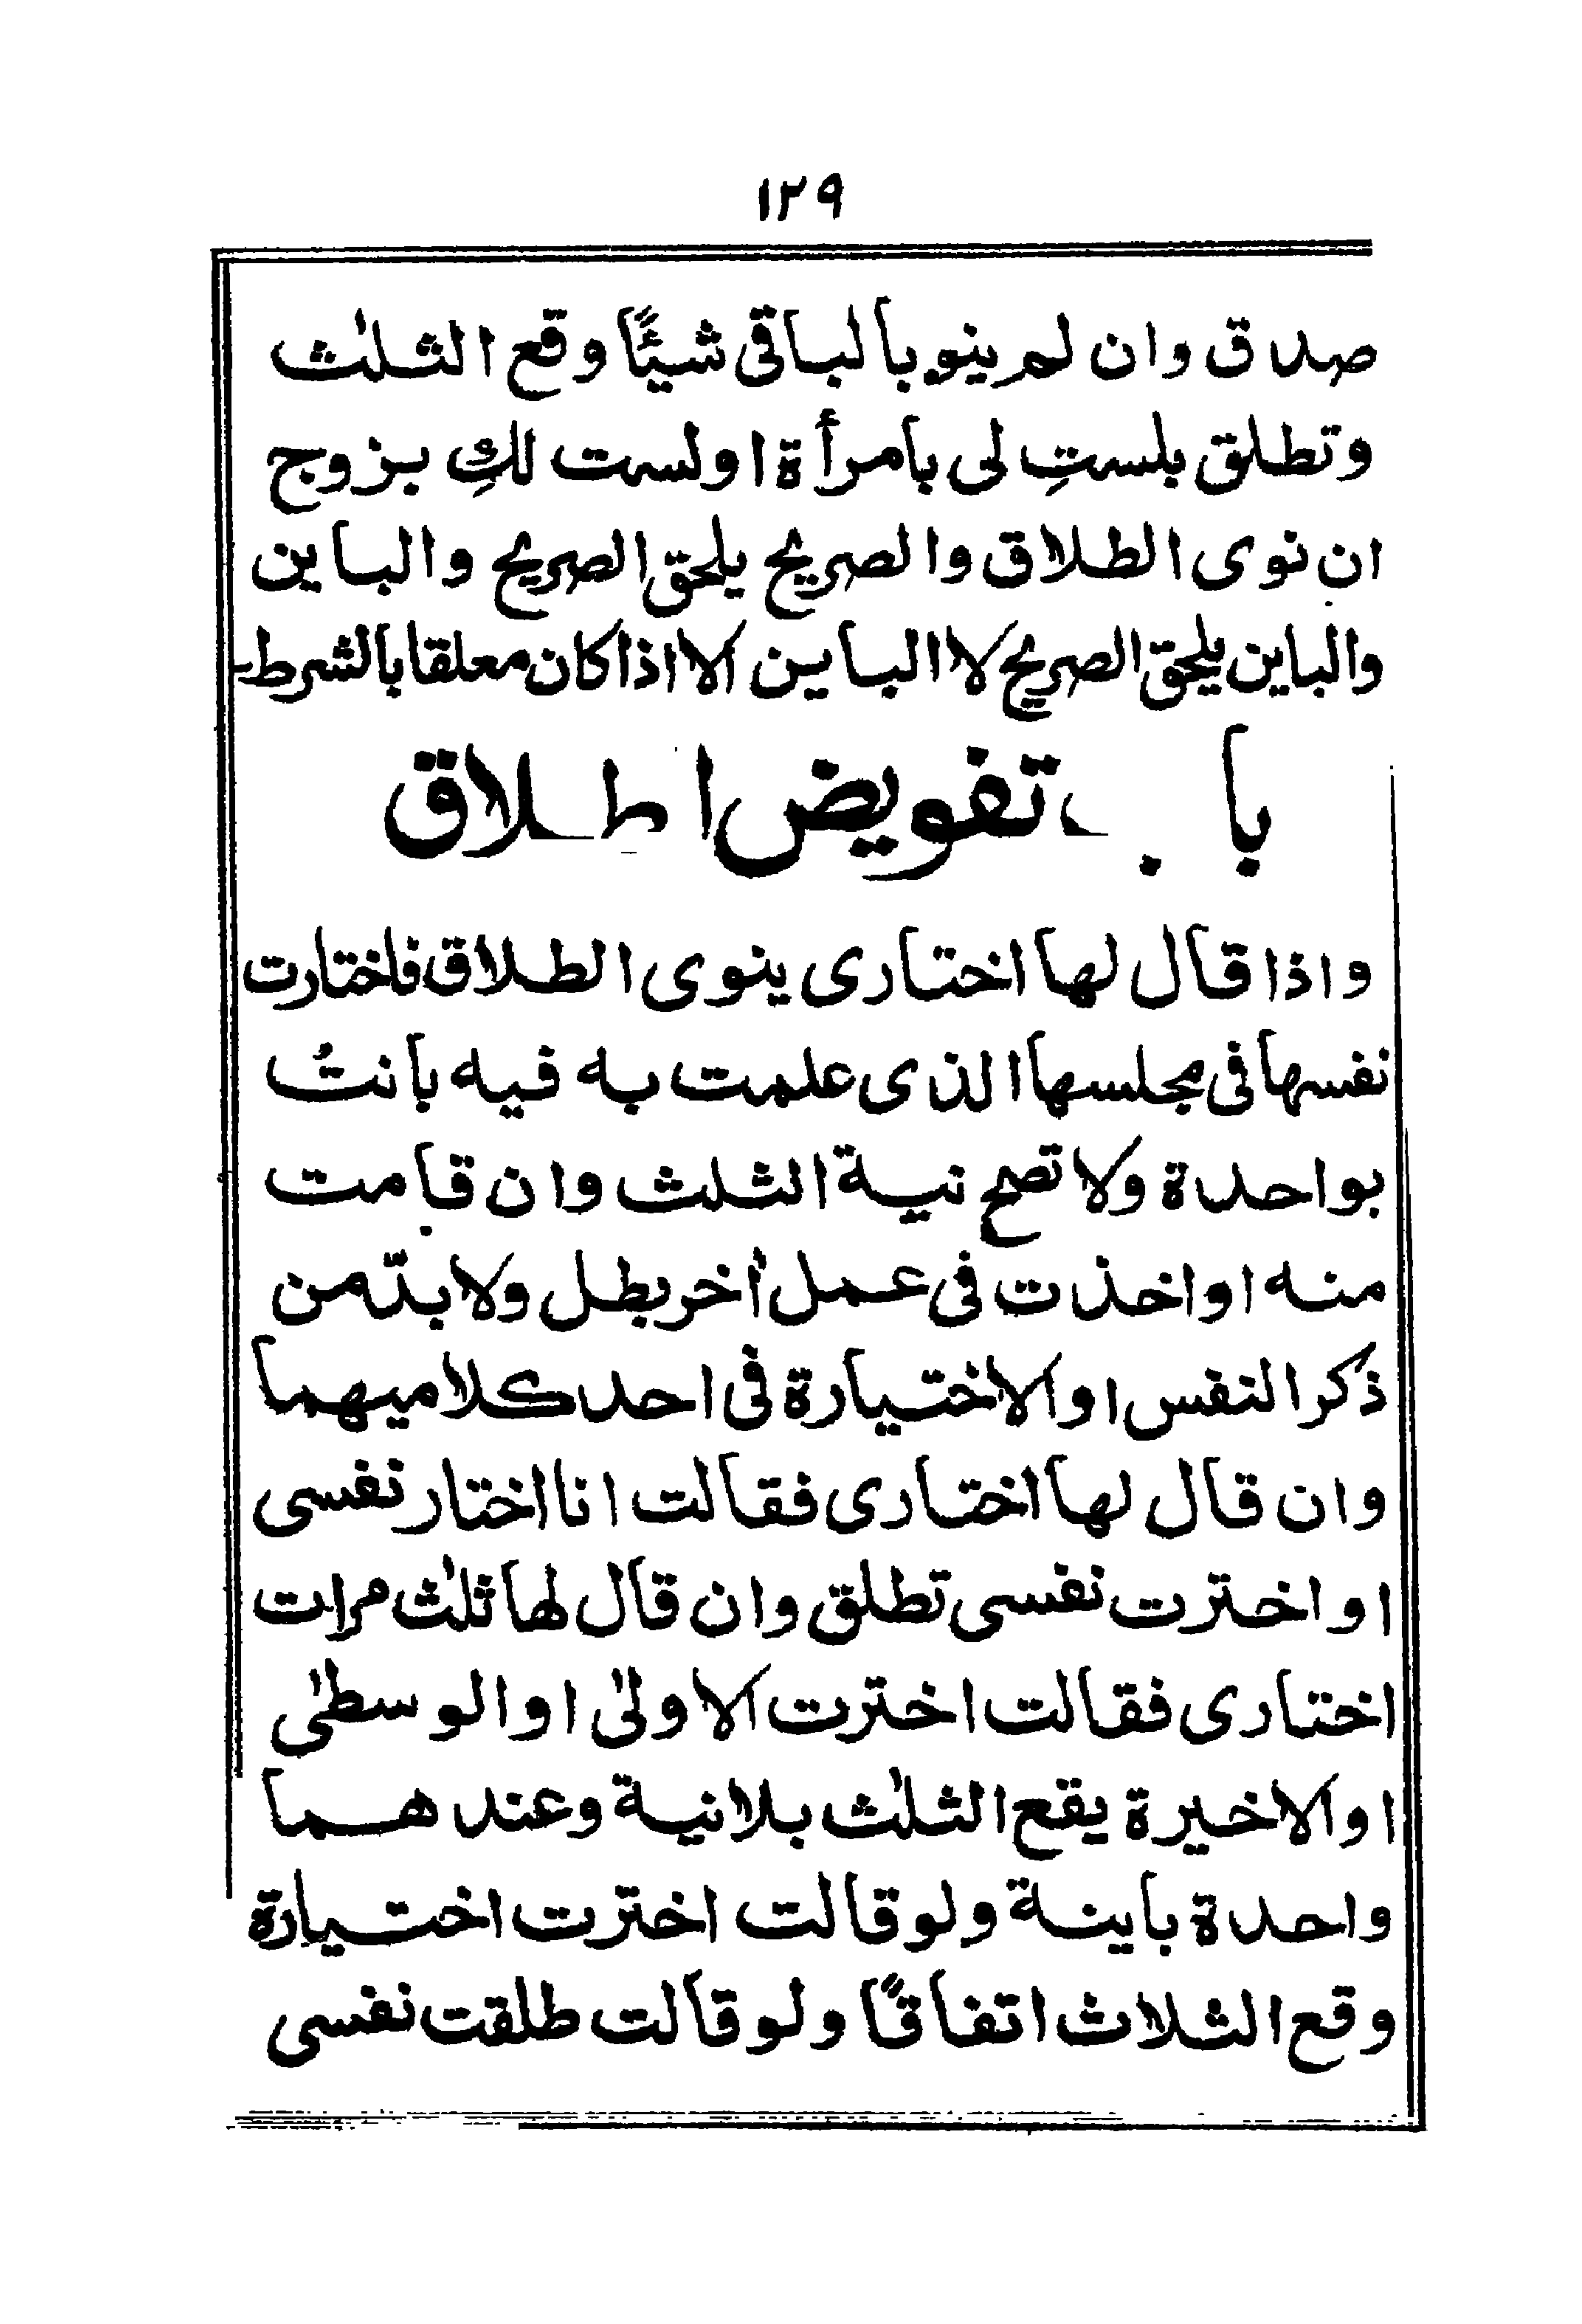 ١٢٩
صدق وان لم ينو بالباقى شيئًا وقع الثلٰث
وتطلق بلستِ لى بامرأة او لست لكِ بزوج
ان نوى الطلاق والصريح يلحق الصريح والباين
والباين يلحق الصريح لا الباين الا اذا كان معلقا بالشرط
باب تفويض الطلاق
واذا قال لها اختارى ينوى الطلاق فاختارت
نفسها فى مجلسها الذى علمت به فيه بانتُ
بواحدة ولا تصح نية الثلث وان قامت
منه او اخذت فى عمل اٰخر بطل ولا بدّ من
ذكر النفس او الاختيارة فى احد كلاميهما
وان قال لها اختارى فقالت انا اختار نفسى
او اخترت نفسى تطلق وان قال لها ثلٰث مرات
اختارى فقالت اخترت الاولىٰ او الوسطىٰ
او الاخيرة يقع الثلٰث بلانية وعندهما
واحدة باينة ولو قالت اخترت اختيارة
وقع الثلاث اتفاقًا ولو قالت طلقت نفسى